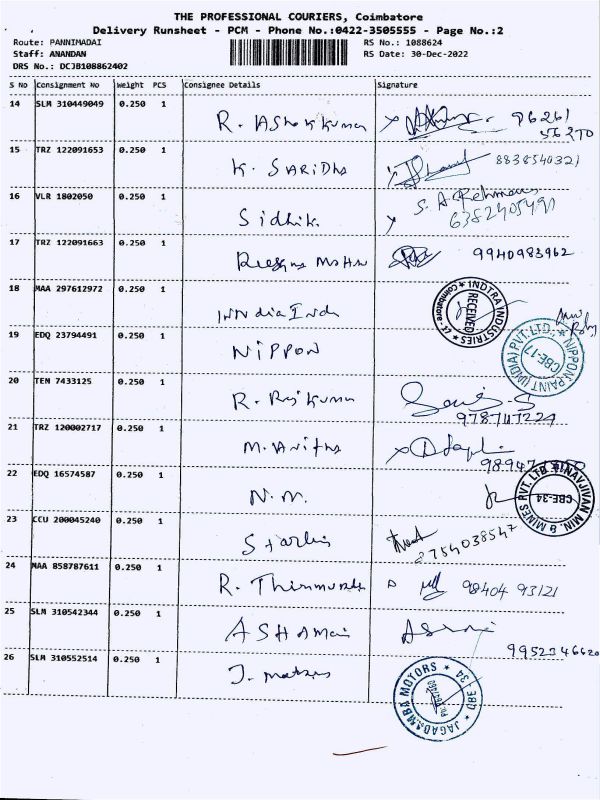 THE PROFESSIONAL COURIERS, Coimbatore
Delivery Runsheet - PCM - Phone No.:0422-3505555 - Page No.:2
Route: PANNIMADAI RS No.: 1088624
Staff: ANANDAN RS Date: 30-Dec-2022
DRS No.: DCJB108862402
S No Consignment No Weight PCS Consignee Details Signature
14 SLM 310449049 0.250 1
R. Ashok Kumar 96261
56270
15 TRZ 122091653 0.250 1
K. SARIDha 8838540321
16 VLR 1802050 0.250 1
Sidhik S. A. Rehman
6382405491
17 TRZ 122091663 0.250 1
Mohan 9940983962
18 MAA 297612972 0.250 1
INDTRA INDUSTRIES
RECEIVED
Coimbatore - 17
INdia Ind
19 EDQ 23794491 0.250 1
NIPPON
NIPPON PAINT (INDIA) PVT. LTD.
CBE-17
20 TEN 7433125 0.250 1
R. Raj Kumar
9787117224
21 TRZ 120002717 0.250 1
M. Anitha
22 EDQ 16574587 0.250 1
N. M.
NAVJIVAN MIN. & MINES PVT. LTD
CBE-34
23 CCU 200045240 0.250 1
8754038547
24 MAA 858787611 0.250 1
R. 98404 93121
25 SLM 310542344 0.250 1
9952346620
26 SLM 310552514 0.250 1
J.
JAGADAMBA MOTORS
CBE - 34